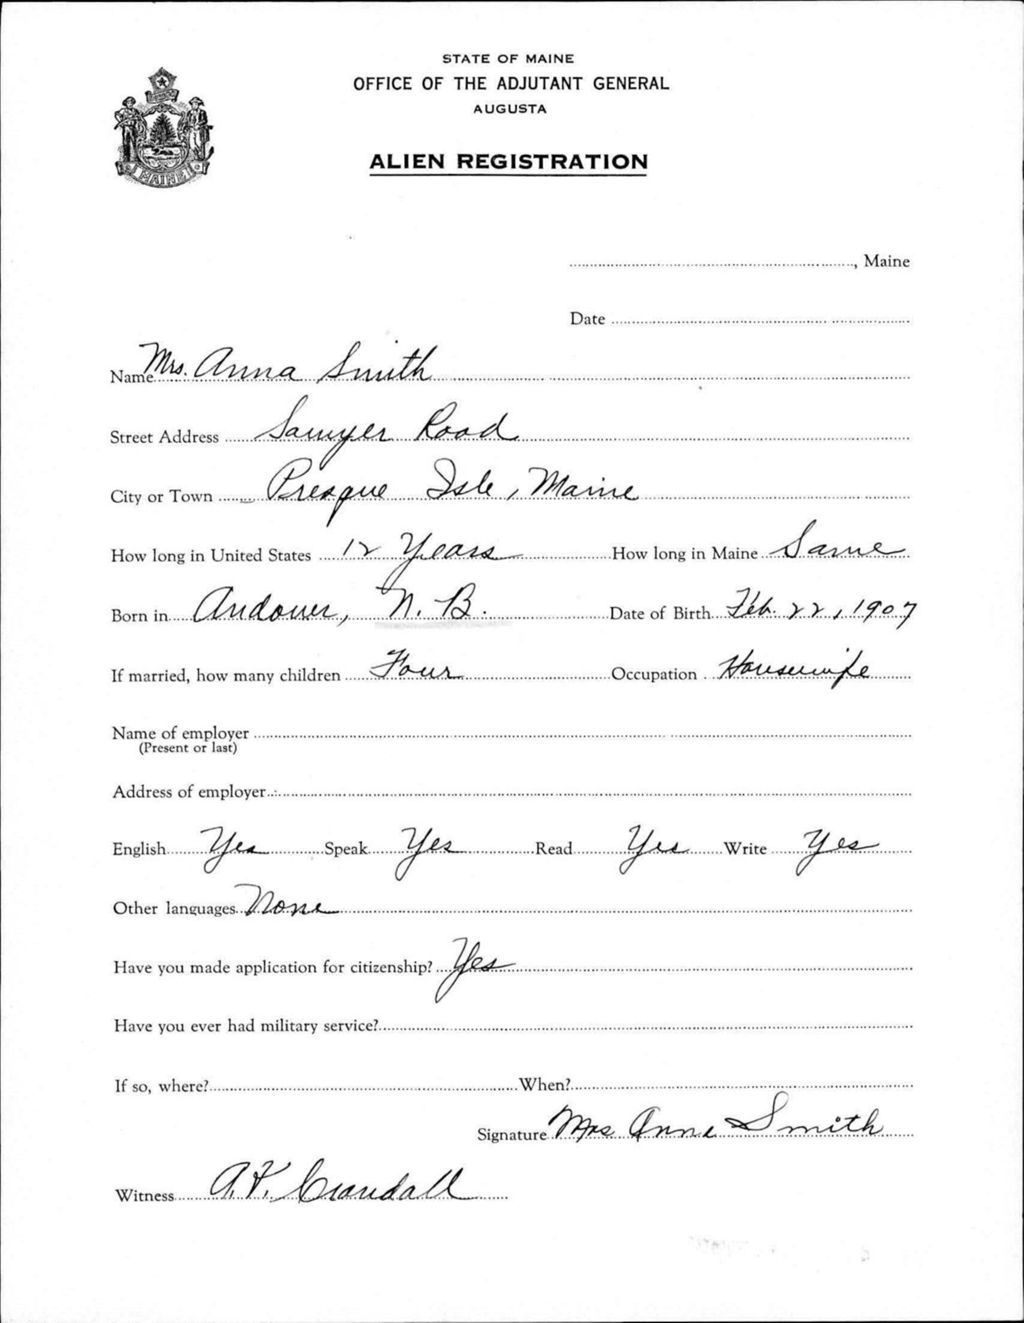 STATE OF MAINE
OFFICE OF THE ADJUTANT GENERAL
AUGUSTA
MAINE
ALIEN REGISTRATION
, Maine
Date
Name Mrs. Anna Smith
Street Address Sawyer Road
City or Town Presque Isle, Maine
How long in United States 12 Years How long in Maine Same
Born in Andover, N. B. Date of Birth Feb. 22, 1907
If married, how many children Four Occupation Housewife
Name of employer
(Present or last)
Address of employer
English Yes Speak Yes Read Yes Write Yes
Other languages None
Have you made application for citizenship? Yes
Have you ever had military service?
If so, where? When?
Signature Mrs Anna Smith
Witness Crandall